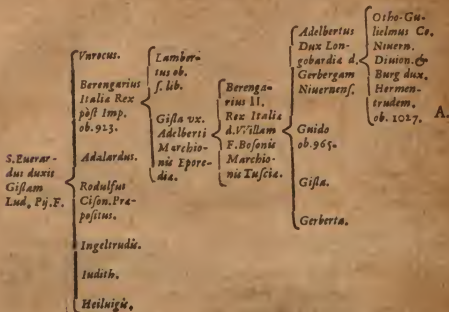 S. Euerar-
dus duxis
Giſlam
Lud. Pij. F.
Vnrocus.
Berengarius
Italiæ Rex
pòſt Imp.
ob. 923.
Adalardus.
Rodulfus
Ciſon. Præ-
poſitus.
Ingeltrudis.
Iudith.
Heiluigis.
Lamber-
tus ob.
ſ. lib.
Giſla vx.
Adelberti
Marchio-
nis Epore-
diæ.
Berenga-
rius II.
Rex Italiæ
d. Willam
F. Boſonis
Marchio-
nis Tuſciæ.
Adelbertus
Dux Lon-
gobardiæ d.
Gerbergam
Niuernenſ.
Guido
ob. 965.
Giſla.
Gerberta.
Otho-Gu-
lielmus Co.
Niuern.
Diuion. &
Burg dux.
Hermen-
trudem.
ob. 1027.
A.